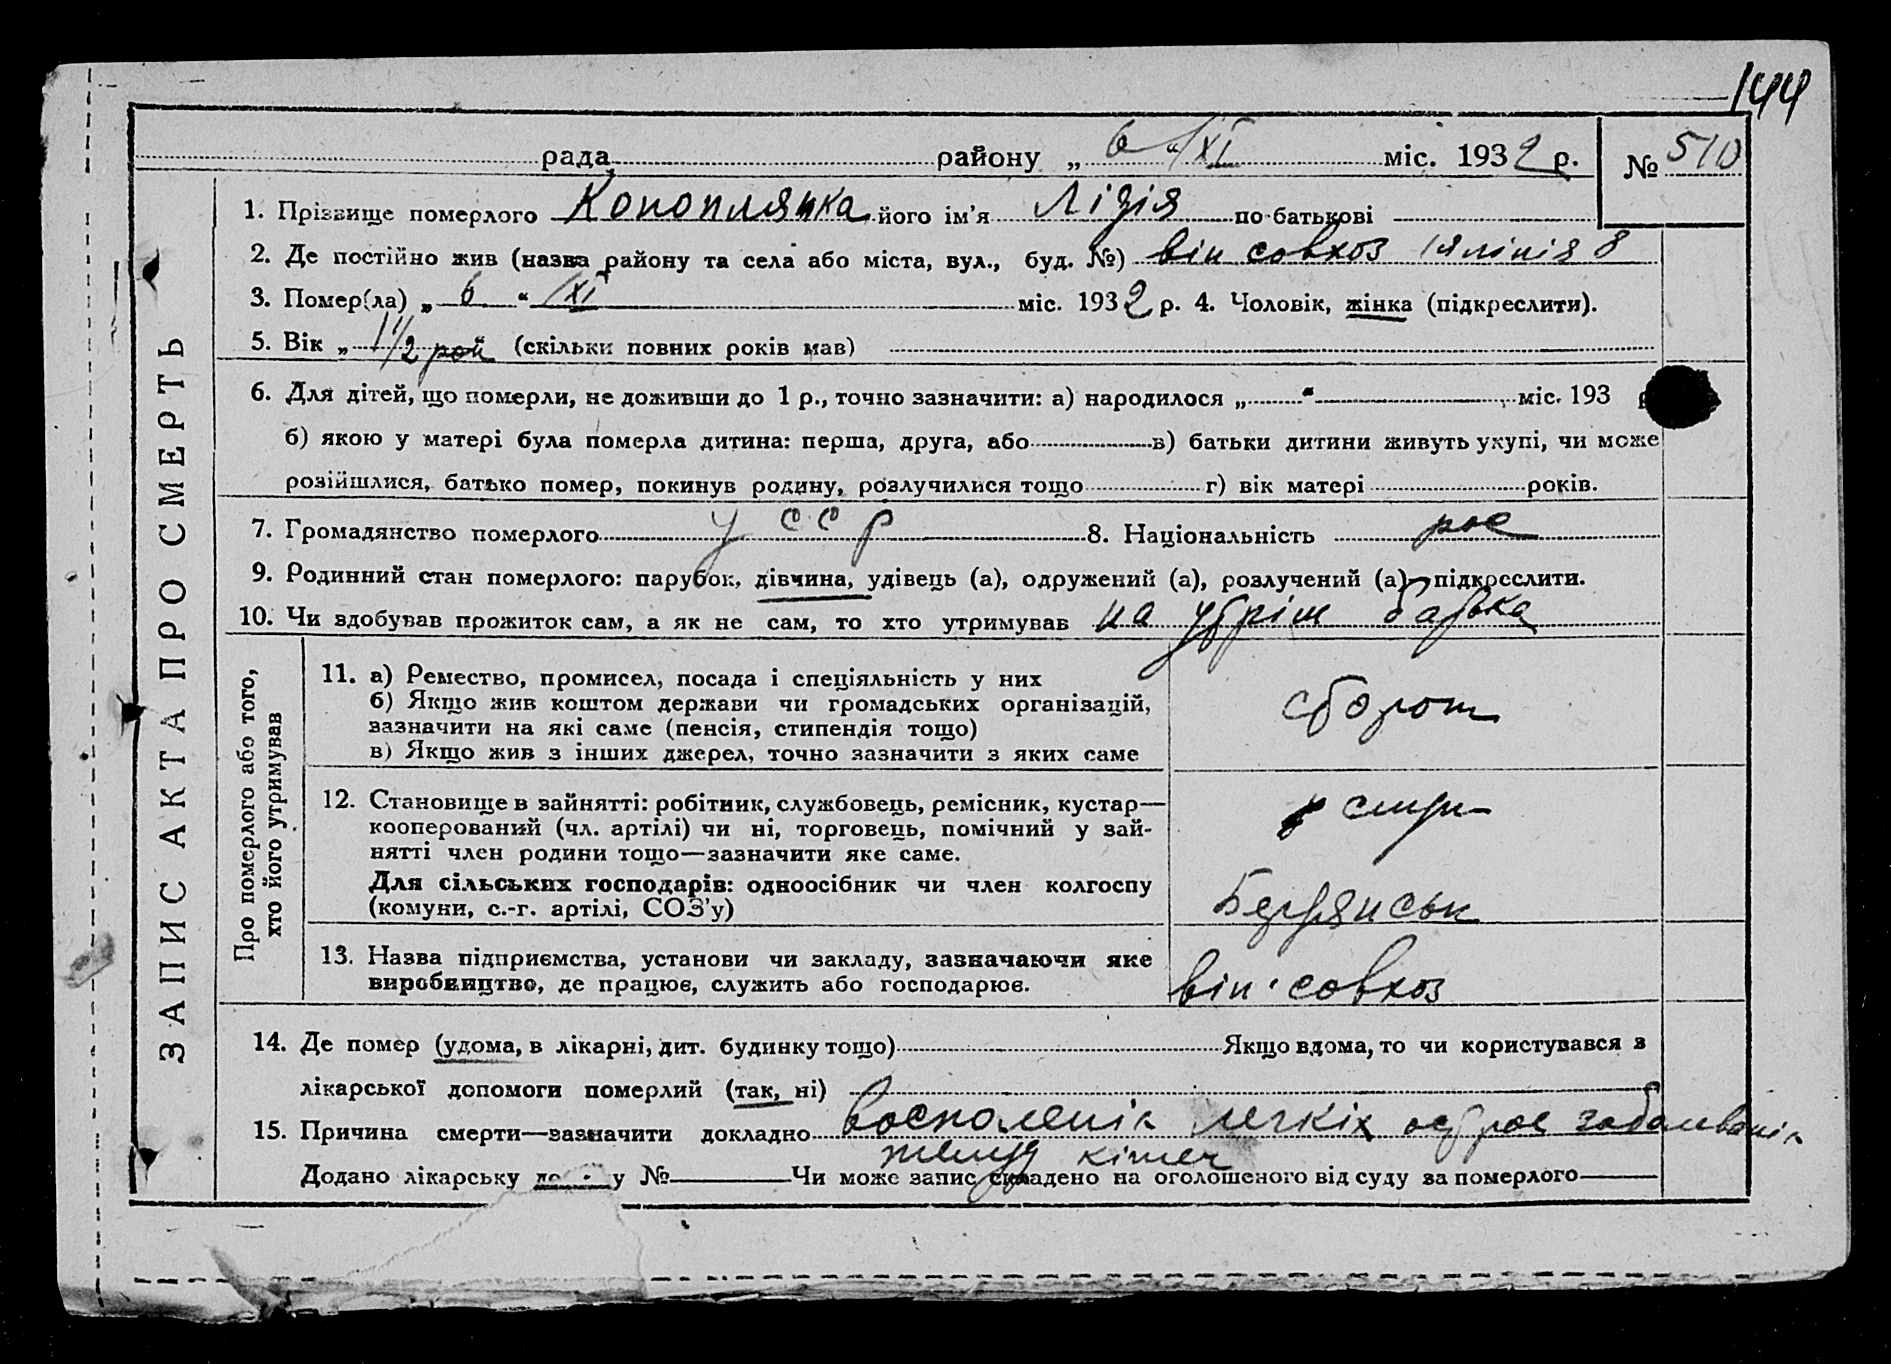 144
рада района „ 6 “ XI міс. 1932 р. № 510
1. Прізвище померлого Коноплянка його ім'я Лідія по батькові
2. Де постійно жив (назва району та села або міста, вул., буд. №) він совхоз 1я лінія 8
3. Помер(ла) „ 6 “ XI міс. 1932 р. 4. Чоловік, жінка (підкреслити).
5. Вік „ 1 1/2 рой (скільки повних років мав)
6. Для дітей, що померли, не доживши до 1 р., точно зазначити: а) народилося „ “ міс. 193
б) якою у матері була померла дитина: перша, друга, або в) батьки дитини живуть укупі, чи може
розійшлися, батько помер, покинув родину, розлучилися тощо г) вік матері років.
7. Громадянство померлого УССР 8. Національність рос
9. Родинний стан померлого: парубок, дівчина, удівець (а), одружений (а), розлучений (а)—підкреслити.
10. Чи здобував прожиток сам, а як не сам, то хто утримував на утрім батька
ЗАПИС АКТА ПРО СМЕРТЬ
Про померлого або того,
хто його утримував
11. а) Ремество, промисел, посада і спеціяльність у них
б) Якщо жив коштом держави чи громадських організацій,
зазначити на які саме (пенсія, стипендія тощо)
в) Якщо жив з інших джерел, точно зазначити з яких саме
12. Становище в зайнятті: робітник, службовець, ремісник, кустар—
кооперований (чл. артілі) чи ні, торговець, помічний у зай-
нятті член родини тощо—зазначити яке саме.
Для сільських господарів: одноосібник чи член колгоспу
(комуни, с.-г. артілі, СОЗ'у)
Бердянськ
13. Назва підприємства, установи чи закладу, зазначаючи яке
виробництво, де працює, служить або господарює.
він. совхоз
14. Де помер (удома, в лікарні, дит. будинку тощо) Якщо вдома, то чи користувався з
лікарської допомоги померлий (так, ні)
15. Причина смерти—зазначити докладно воспаленія легкіх острое заболеванія
желуд кішеч
Додано лікарську до у № Чи може запис складено на оголошеного від суду за померлого